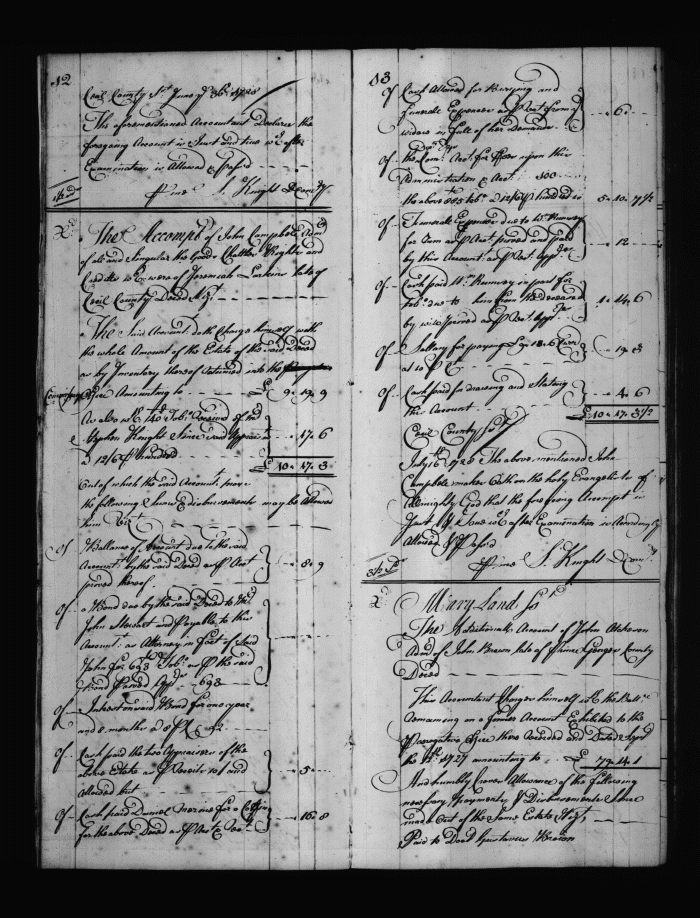 12
Cecil County Sst. June ye 1728
The aforementioned Accountant Declares the
foregoing Account is Just and true wch. after
Examination is Allowed & passed
Prime S. Knight D Comry
Xd. The Accompt of John Campble Admr
of all and Singular the Goods Chattles Rights and
Credits wch were of Jeremiah Larkin late of
Cecil County Decd Vizt.
The Said Accountt. doth Charge himself with
the whole Amount of the Estate of the said Decd
as by Inventory thereof returned into the
Comissrys Office Amounting to £ 9 . 19 . 9
As also wth. 140 lb Tobo. Received of Mr
Stephen Knight Since said Appraismt . . 17 . 6
a 12/6 P hundred
£ 10 . 17 . 3
Out of which the said Accountt. prays
the following Sums & disbursements may be Allowed
him Vizt
Of Ballance of Account due to the said
Accountt. by the said Decd as P Acct . . 8 . 9
proved thereof
Of a Bond due by the said Decd to Mr.
John Stewart and Payable to this
Accountt. as Attorney in fact of said
John for 698 lb Tobo. as P the said
Bond proved App. 698
Of Interest on said Bond for one year
and 8 months a 8 P Ct
Of Cash paid the two Appraisers of the
above Estate as P Receipt to 1 and . . 5 .
allowed but
Of Cash paid Daniel for a Coffin . . 16 . 8
for the above Decd as P Acct & Rect.
13
Of Cash Allowed for Burying and
funerale Expences as P Rect from ye . . 6 .
widow in full of her Demands
Of the Com. Acct. for ffees upon this
Administration & Acct. 100
the above 885 Tobo. a 12/6 P hundred is 5 . 10 . 7 1/2
Of Funerale Expences due to Wm. Rumsey
for Rum as P Acct proved and paid . . 12 .
by this Accountt. as P Rect. App.
Of Cash paid Wm Rumsey in part for
Tobo. due to him from the deceased 1 . 14 . 6
by wise proved as P Rect. App.
Of Sallary for paying £9. 18. 6 Curr . . 19 . 3
at 10 P Ct
Of Cash paid for drawing and Stating . . 4 . 6
this Account
£ 10 . 17 . 3 1/2
Cecil County Sst
July 16th 1728 The above mentioned John
Campble makes Oath on the holy Evangelists of
Almighty God that the foregoing Accompt is
Just & true wch after Examination is Accordingly
Allowed & Passed
Prime S. Knight D Comry
Xd. Mary Land Sst
The Additionale Account of John
Admr of John Brown late of Prince Georges County
Decd
This Accountant Charges himself wth the Ballce
remaining on a former Account Exhibited to the
Prerogative Office there Recorded and Dated
the 1727 amounting to £ 79 . 14 . 1
And humbly Craves Allowance of the following
necessary Payments & Disbursements Since
made Out of the Same Estate Vizt.
Paid to Doct Gustavus Brown